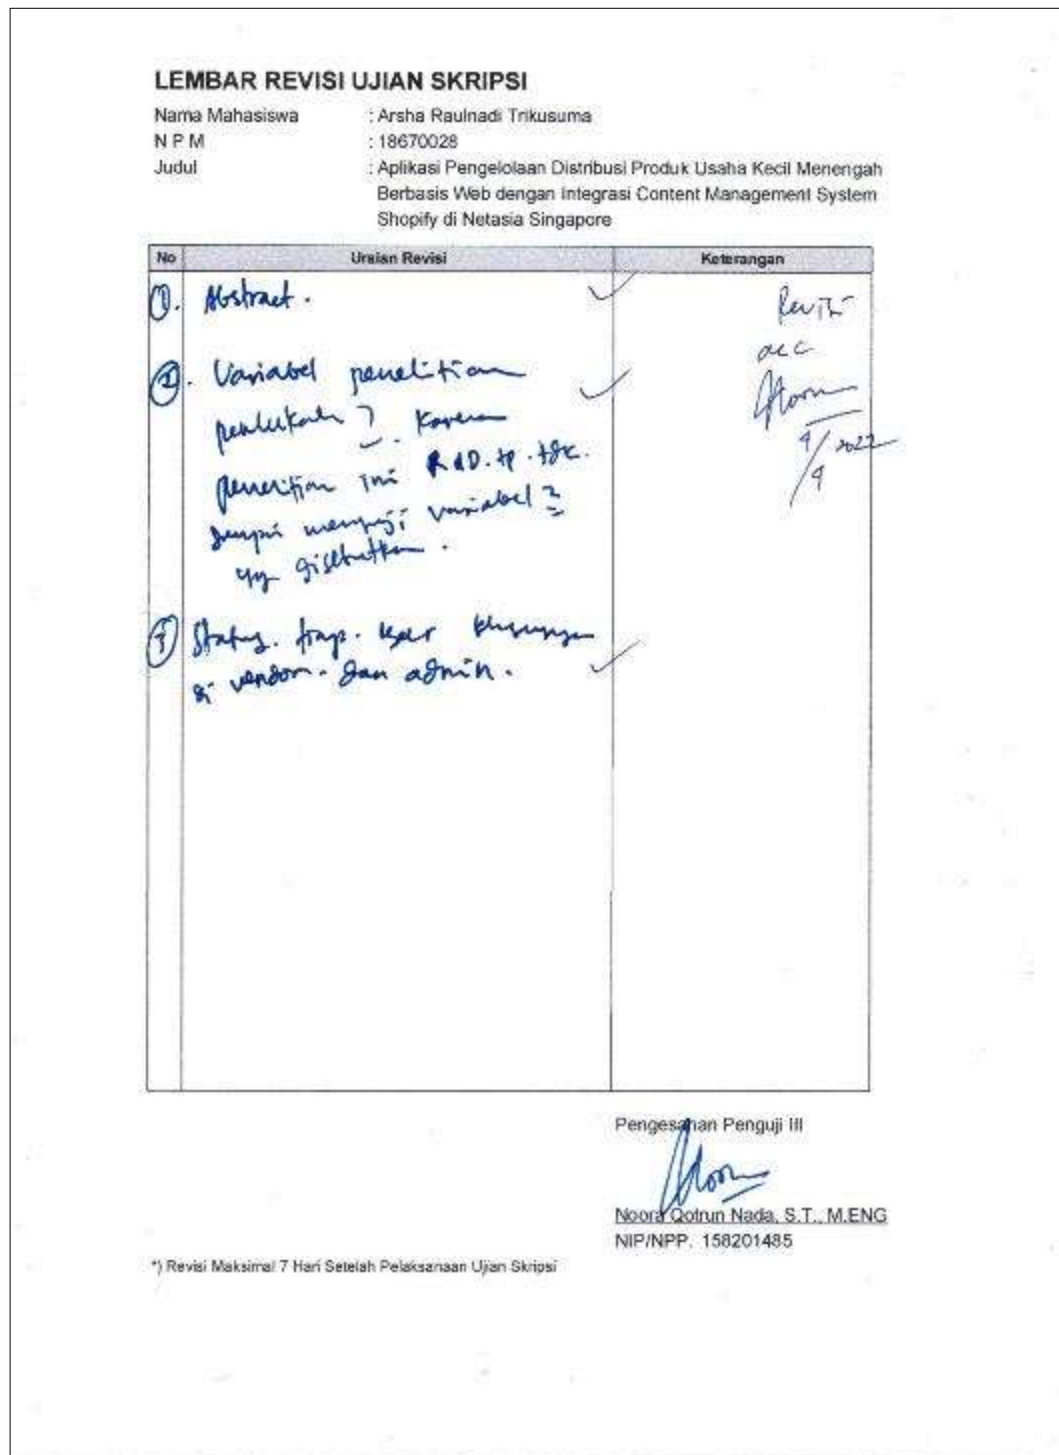 LEMBAR REVISI UJIAN SKRIPSI
Nama Mahasiswa : Arsha Raulnadi Trikusuma
N P M : 18670028
Judul : Aplikasi Pengelolaan Distribusi Produk Usaha Kecil Menengah
Berbasis Web dengan Integrasi Content Management System
Shopify di Netasia Singapore
No Uraian Revisi Keterangan
1. Abstract.
2. Variabel penelitian
? Karena
penelitian ini R&D. tp. tdk.
menguji variabel2
yg disebutkan.
3 Status. tiap. user
di vendor. dan admin.
Revisi
acc
9/2022
Pengesahan Penguji III
Noora Qotrun Nada, S.T., M.ENG
NIP/NPP. 158201485
*) Revisi Maksimal 7 Hari Setelah Pelaksanaan Ujian Skripsi